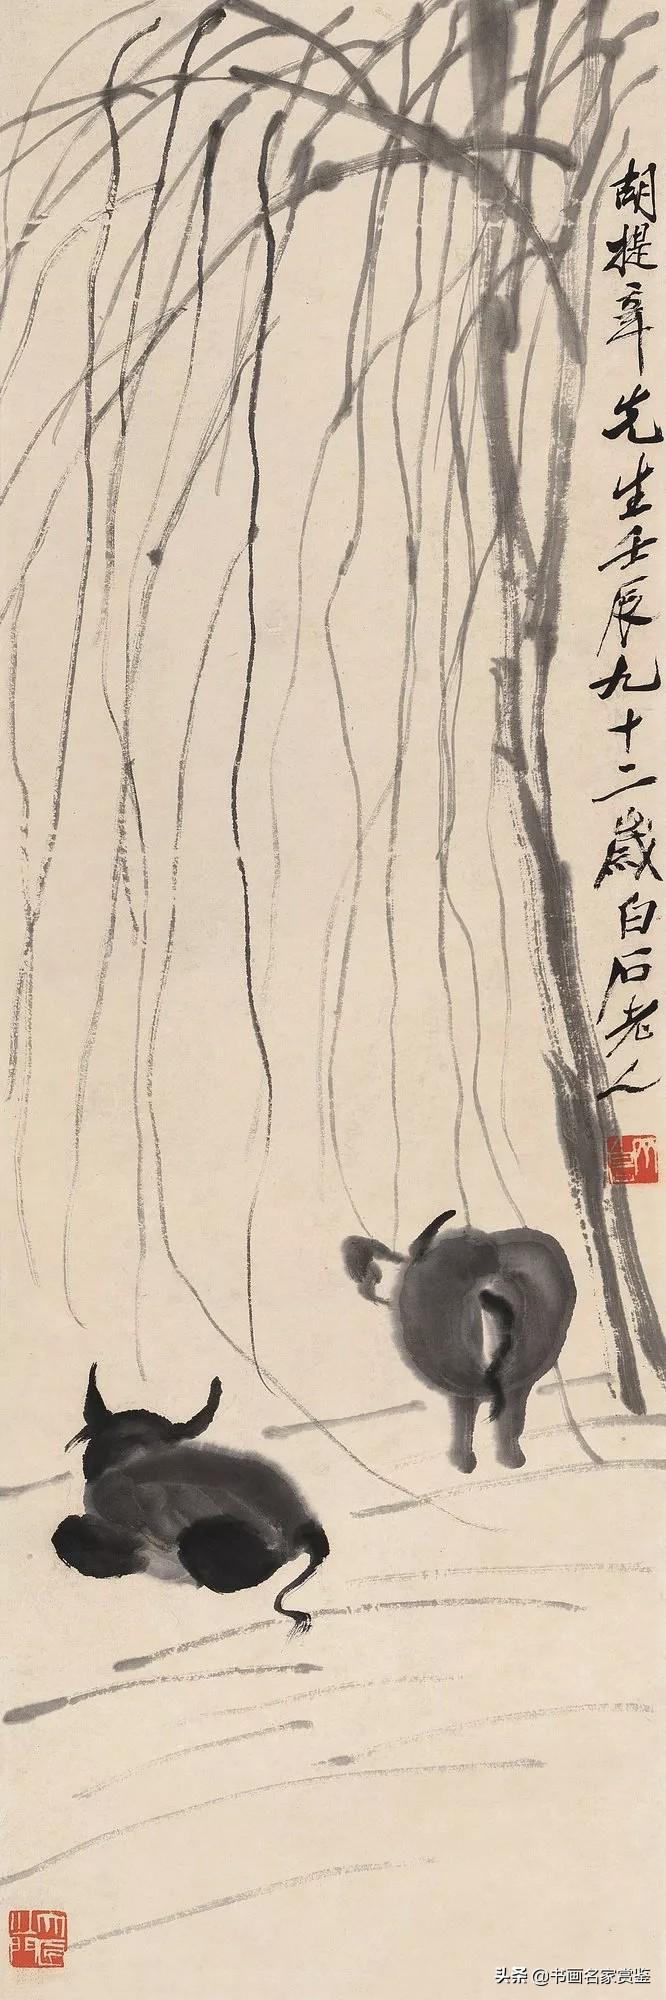 胡提章先生壬辰九十二歲白石老人
头条 @书画名家赏鉴